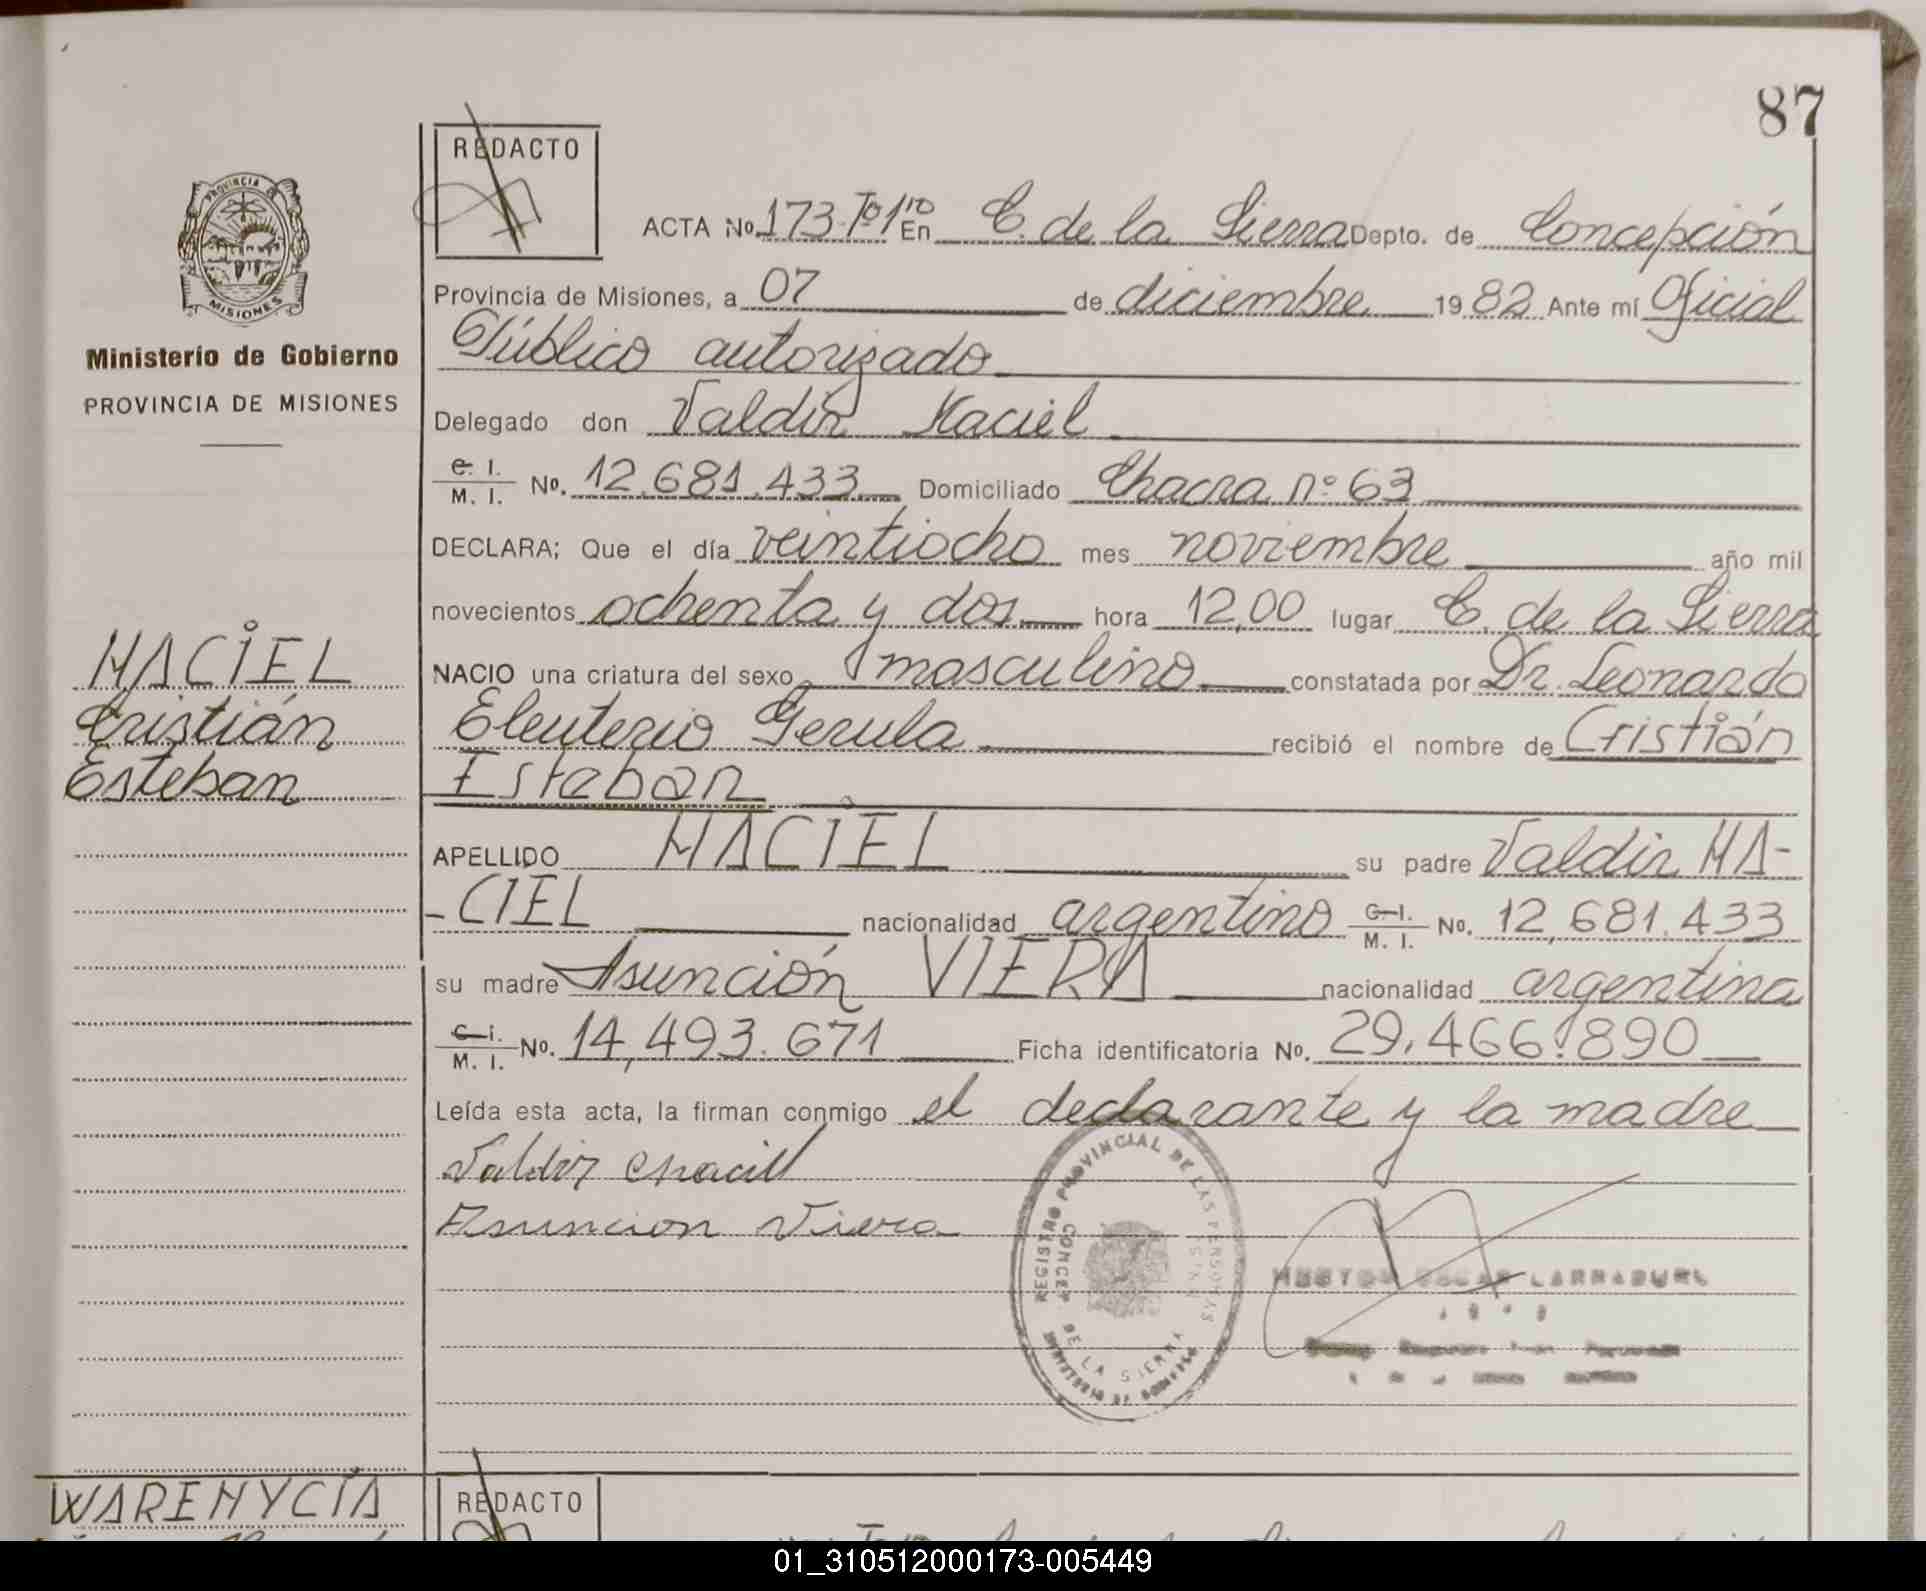 87
REDACTO
PROVINCIA DE
MISIONES
Ministerio de Gobierno
PROVINCIA DE MISIONES
ACTA No. 173-Tº1ro En C. de la Sierra Depto. de Concepción
Provincia de Misiones, a 07 de diciembre 1982 Ante mí Oficial
Público autorizado
Delegado don Valdir Maciel
C. I. M. I. No. 12.681.433 Domiciliado Chacra nº 63
DECLARA; Que el día veintiocho mes noviembre año mil
novecientos ochenta y dos hora 12,00 lugar C. de la Sierra
NACIO una criatura del sexo masculino constatada por Dr. Leonardo
Eleuterio Gerula recibió el nombre de Cristián
Esteban
MACIEL
Cristián
Esteban
APELLIDO MACIEL su padre Valdir MA-
-CIEL nacionalidad argentino C. I. M. I. No. 12,681.433
su madre Asunción VIERA nacionalidad argentina
C. I. M. I. No. 14,493.671 Ficha identificatoria No. 29.466.890
Leída esta acta, la firman conmigo el declarante y la madre
Valdir Maciel
Asuncion Viera
REGISTRO PROVINCIAL DE LAS PERSONAS
CONCEP. DE LA SIERRA
MINISTERIO DE GOBIERNO
OSCAR LARRABURE
WARENYCIA
REDACTO
01_310512000173-005449